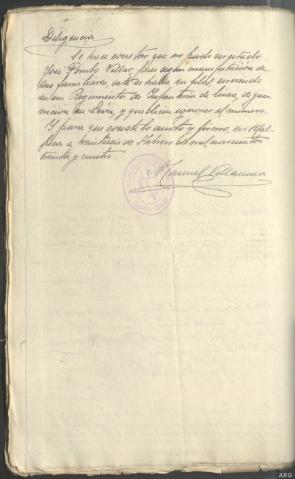 Diligencia
Se hace constar que no pudo ser citado
José Pombo Villar, pues según manifestación de
sus familiares, este se halla en filas sirviendo
en un Regimiento de Infantería de linea, de guar
nición en León, y que bien ignoran el número.
Y para que conste lo anoto y firmo, en
a veintiseis de Febrero de mil novecientos
treinta y cuatro.
Manuel Villanueva
ARG